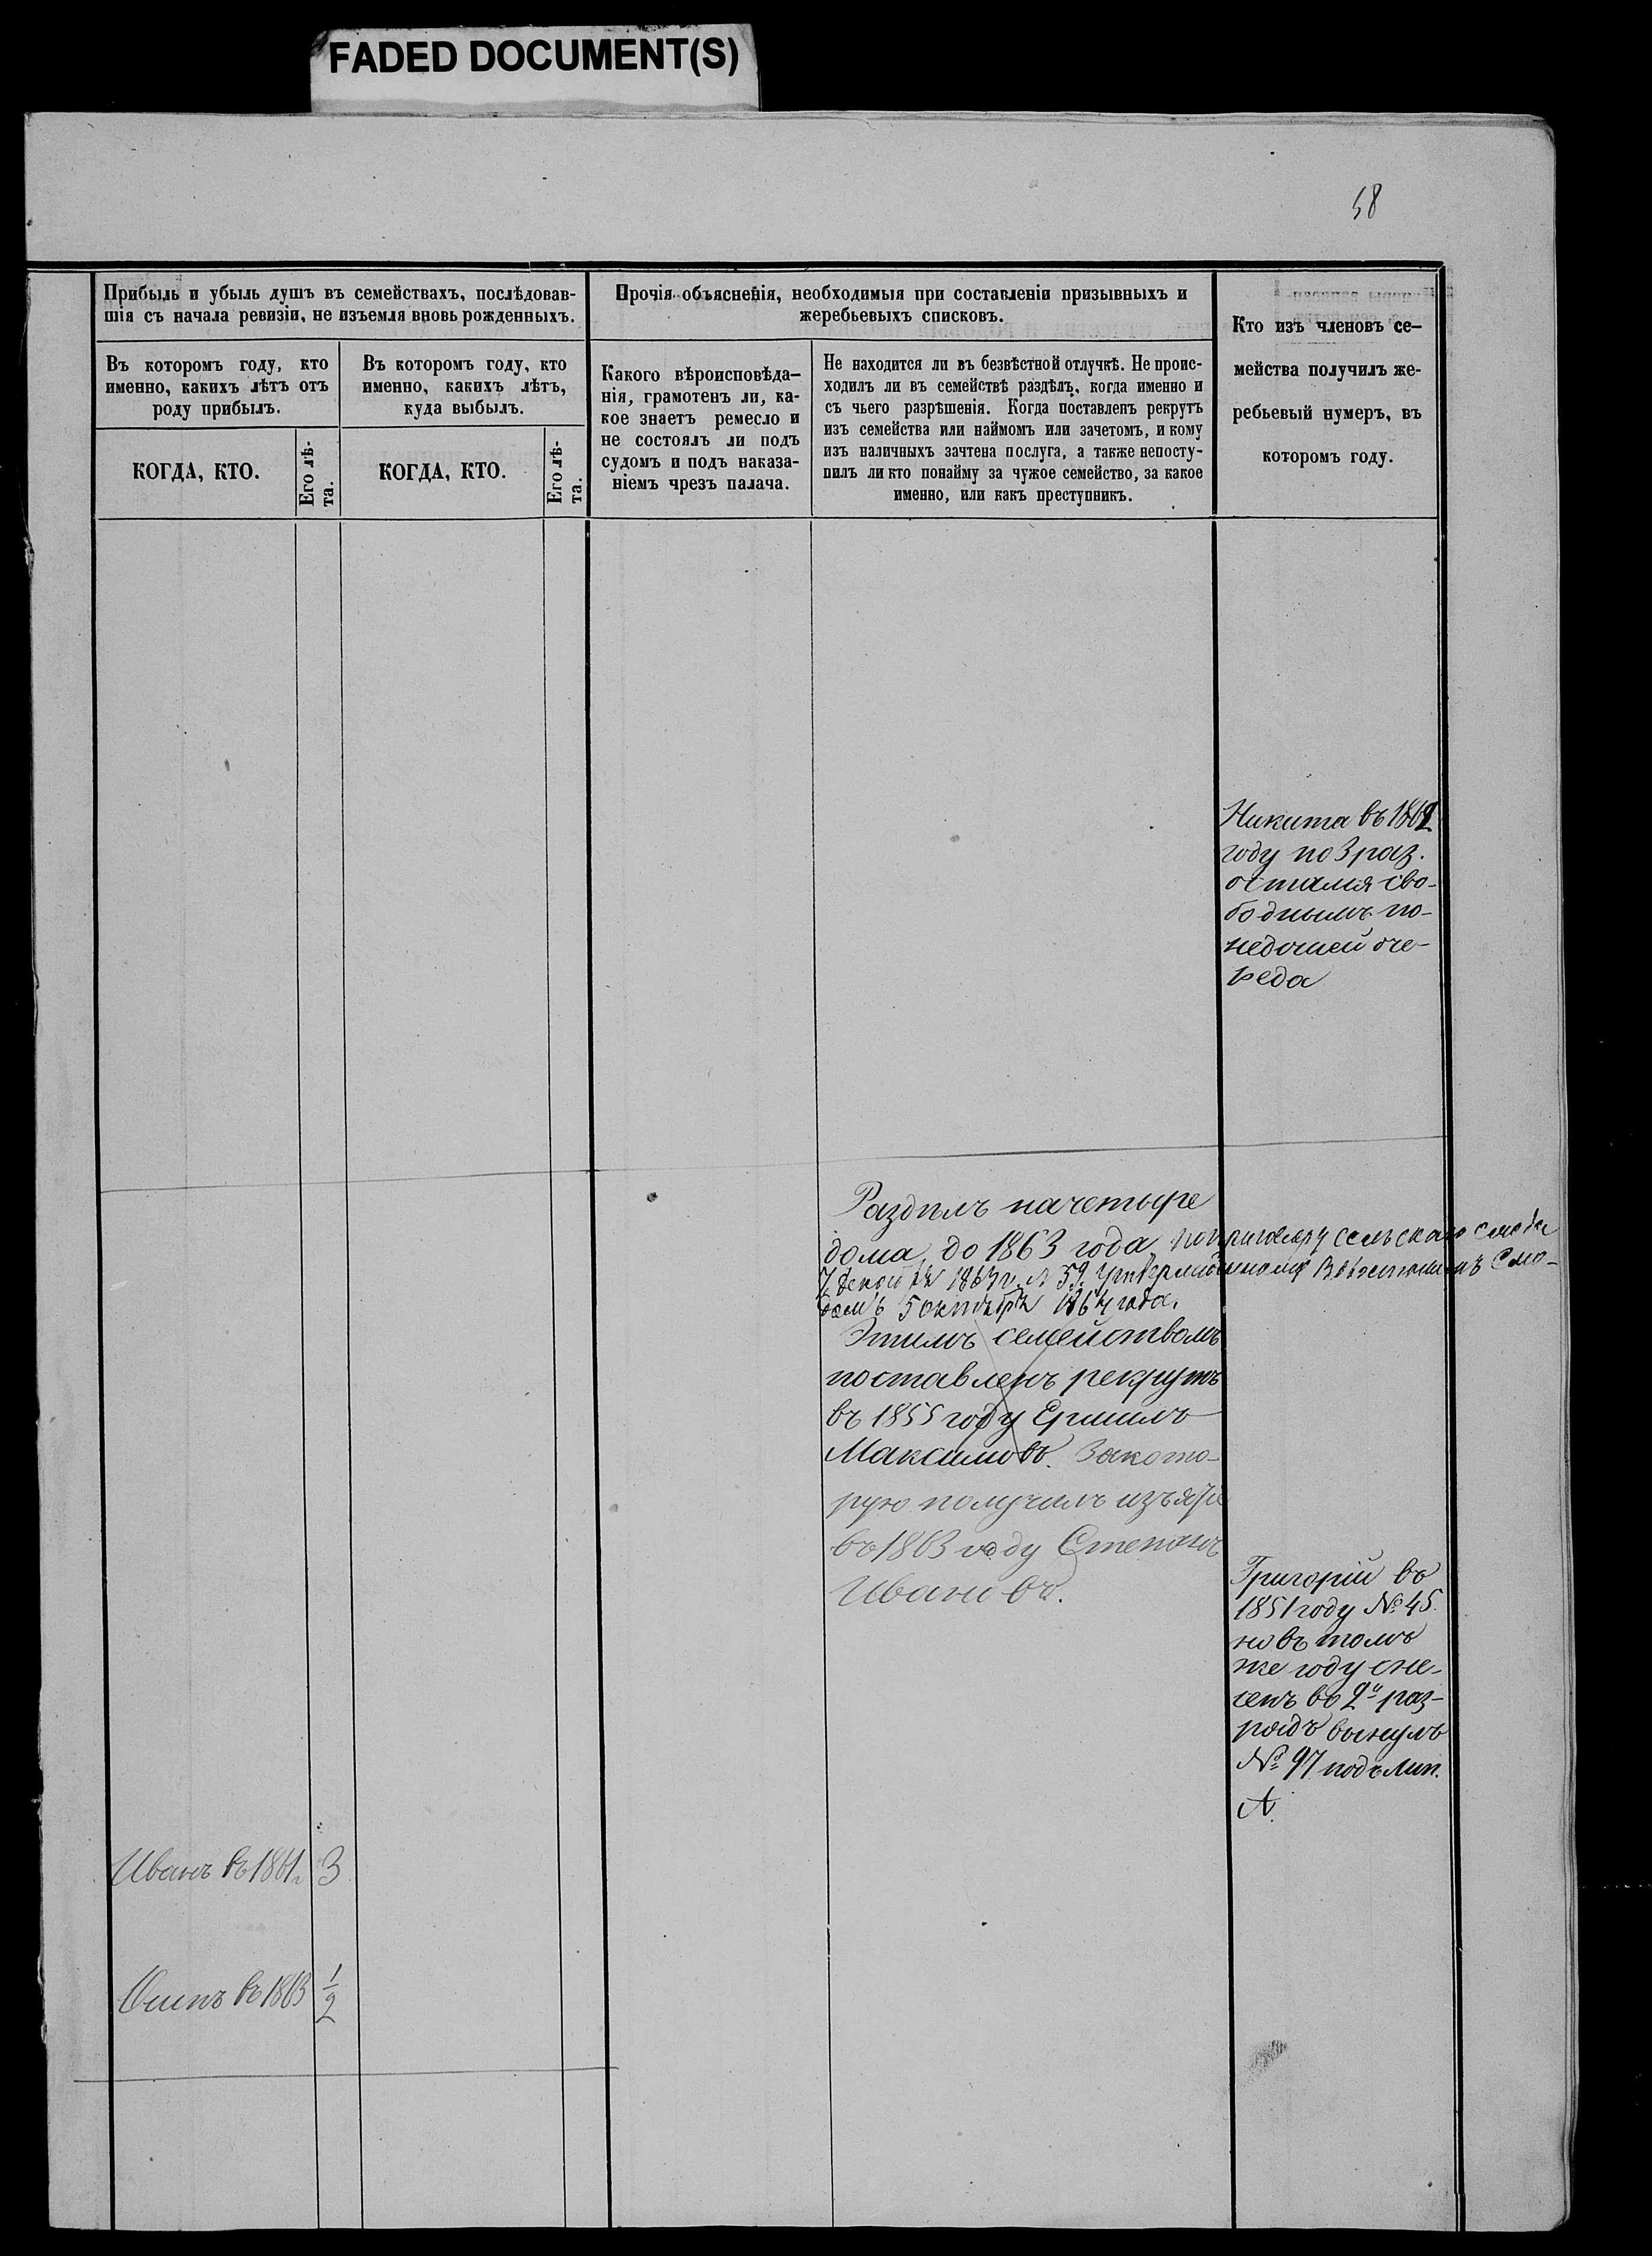 FADED DOCUMENT(S)
58
Прибыль и убыль душъ въ семействахъ, послѣдовав-
шія съ начала ревизіи, не изъемля вновь рожденныхъ.
Въ которомъ году, кто
именно, какихъ лѣтъ отъ
роду прибылъ.
КОГДА, КТО.
Его лѣ-
та.
Въ которомъ году, кто
именно, какихъ лѣтъ,
куда выбылъ.
КОГДА, КТО.
Его лѣ-
та.
Прочія объясненія, необходимыя при составленіи призывныхъ и
жеребьевыхъ списковъ.
Какого вѣроисповѣда-
нія, грамотенъ ли, ка-
кое знаетъ ремесло и
не состоялъ ли подъ
судомъ и подъ наказа-
ніемъ чрезъ палача.
Не находится ли въ безвѣстной отлучкѣ. Не проис-
ходилъ ли въ семействѣ раздѣлъ, когда именно и
съ чьего разрѣшенія. Когда поставленъ рекрутъ
изъ семейства или наймомъ или зачетомъ, и кому
изъ наличныхъ зачтена послуга, а также непосту-
пилъ ли кто понайму за чужое семейство, за какое
именно, или какъ преступникъ.
Кто изъ членовъ се-
мейства получилъ же-
ребьевый нумеръ, въ
которомъ году.
Никита въ 1862
году по 3 раз.
остался сво-
боднымъ по-
недошей оче-
реда
Раздѣлъ начетыре
дома, до 1863 года, поприговору сельскаго схода
7 декабря 1863 г. № 59. Утвержденному Волостнымъ Схо-
домъ 5 октября 1864 года.
Этимъ семействомъ
поставленъ рекрутъ
въ 1855 году Ермилъ
Максимовъ. Закото-
рую получилъ изъятіе
въ 1863 году Степанъ
Ивановъ.
Григорій въ
1851 году № 45.
но въ томъ
же году сне-
сенъ во 2й раз-
рядъ вынулъ
№ 97 подъ лит.
А.
Иванъ въ 1861 г. 3
Осипъ въ 1863 1/2